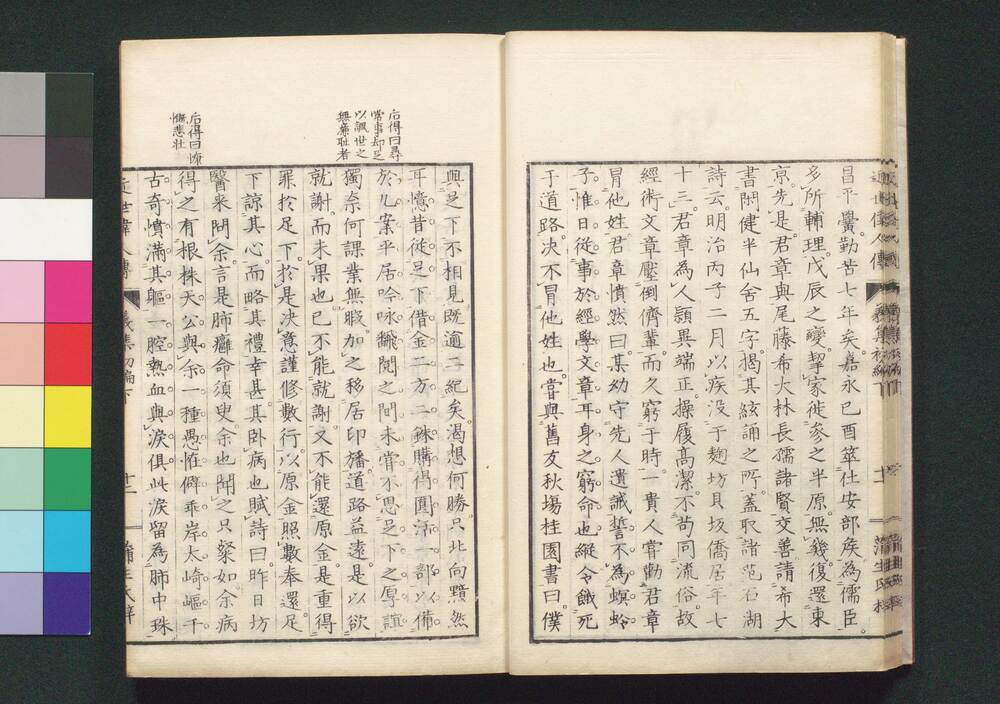 昌平黌勤苦七年矣。嘉永己酉筮仕安部矦為儒臣。
多所輔理。戊辰之變。挈家徙参之半原。無幾復還東
京。先是。君章與尾藤希大林長孺諸賢交善請希大
書閑健半仙舍五字。揭其絃誦之所。蓋取諸范石湖
詩云。明治丙子二月以疾沒于麹坊貝坂僑居。年七
十三。君章為人頴異端正。操履高潔。不苟同流俗。故
經術文章壓倒儕輩。而久窮于時。一貴人嘗勸君章
冒他姓。君章憤然曰某幼守先人遺誡。誓不為螟蛉
子。惟日從事於經學文章耳。身之窮命也。縱令餓死
于道路。決不冒他姓也。嘗與舊友秋場桂園書曰。僕
與足下不相見。既逾二紀矣。渴想何勝。只北向黯然
耳。憶昔從足下借金二方二銖購得圓活一部。以備
於几案。平居吟咏飜閱之間。未嘗不思足下之厚誼
獨奈何課業無暇。加之移居印旛。道路益遠。是以欲
就謝而未果也。已不能就謝。又不能還原金。是重得
罪於足下。於是決意謹修數行。以原金照數奉還。足
下諒其心。而略其禮。幸甚。其臥病也。賦詩曰。昨日坊
醫来問余。言是肺癰命須臾。余也聞之只粲如。余病
得之有根株。天公與余一種愚。怪僻乖岸太崎嶇。千
古奇憤滿其軀。一腔熱血與淚俱。此淚留為肺中珠
后得曰尋
常事却足
以諷世之
無廉耻者
后得曰慷
慨悲壮
近世偉人傳
義集初編下
十二
蒲生氏梓